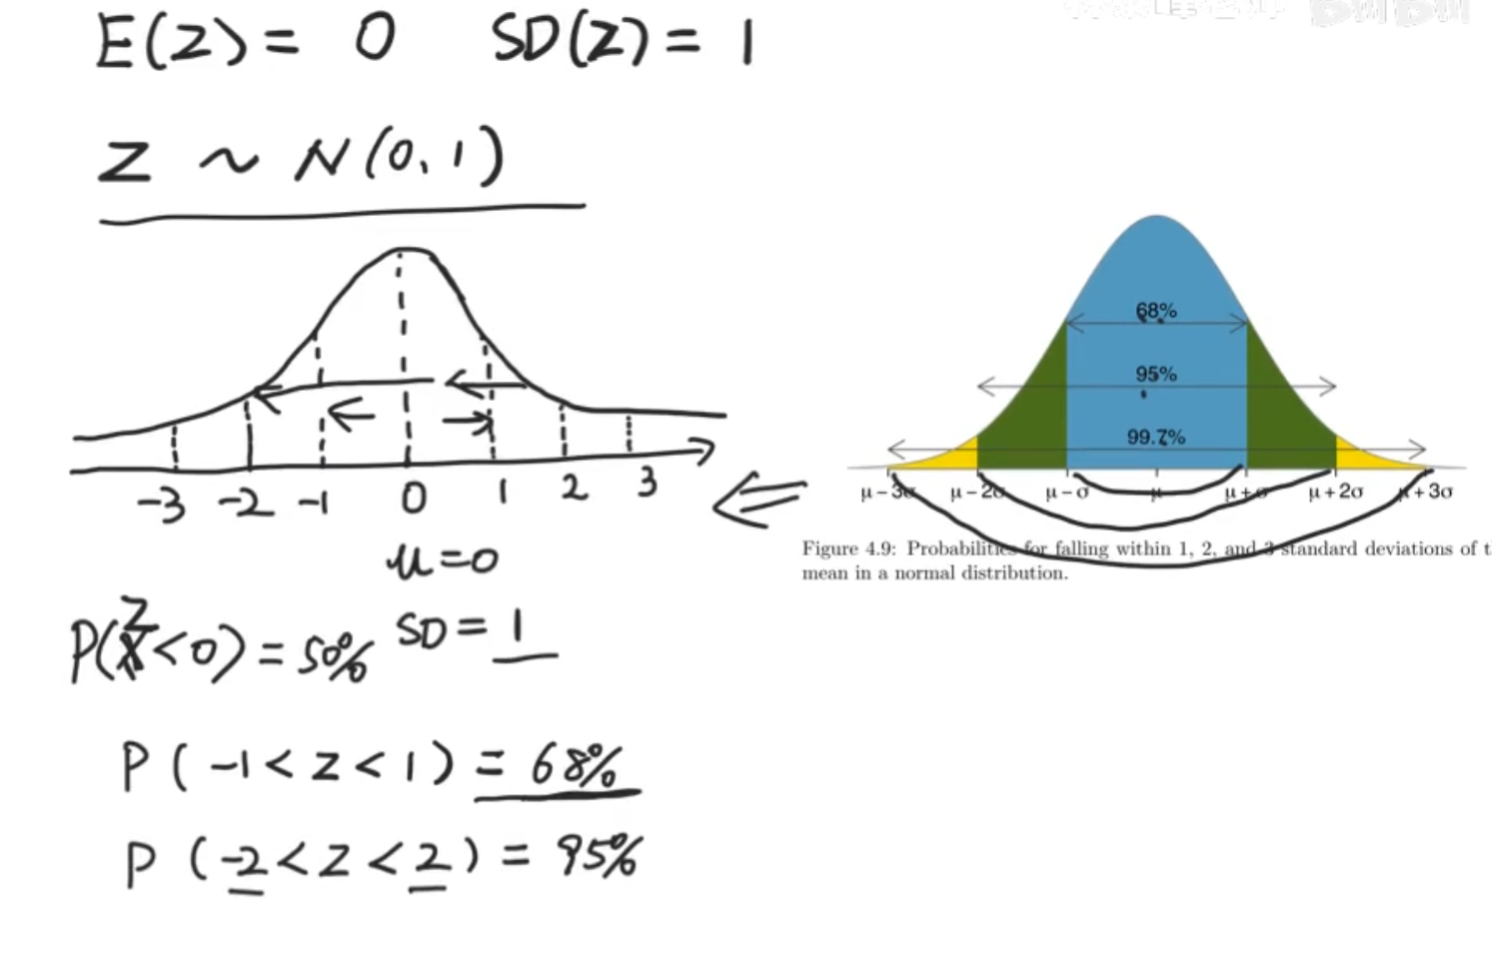 E(Z) = 0 SD(Z) = 1
Z ~ N(0, 1)
-3 -2 -1 0 1 2 3
μ=0
SD = 1
P(Z<0) = 50%
P(-1<Z<1) = 68%
P(-2<Z<2) = 95%
68%
95%
99.7%
μ − 3σ μ − 2σ μ − σ μ μ + σ μ + 2σ μ + 3σ
Figure 4.9: Probabilities for falling within 1, 2, and 3 standard deviations of t
mean in a normal distribution.